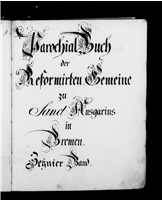 Parochial Buch
der
Reformirten Gemeine
zu
Sanct Ansgarius
in
Bremen.
Sechster Band.